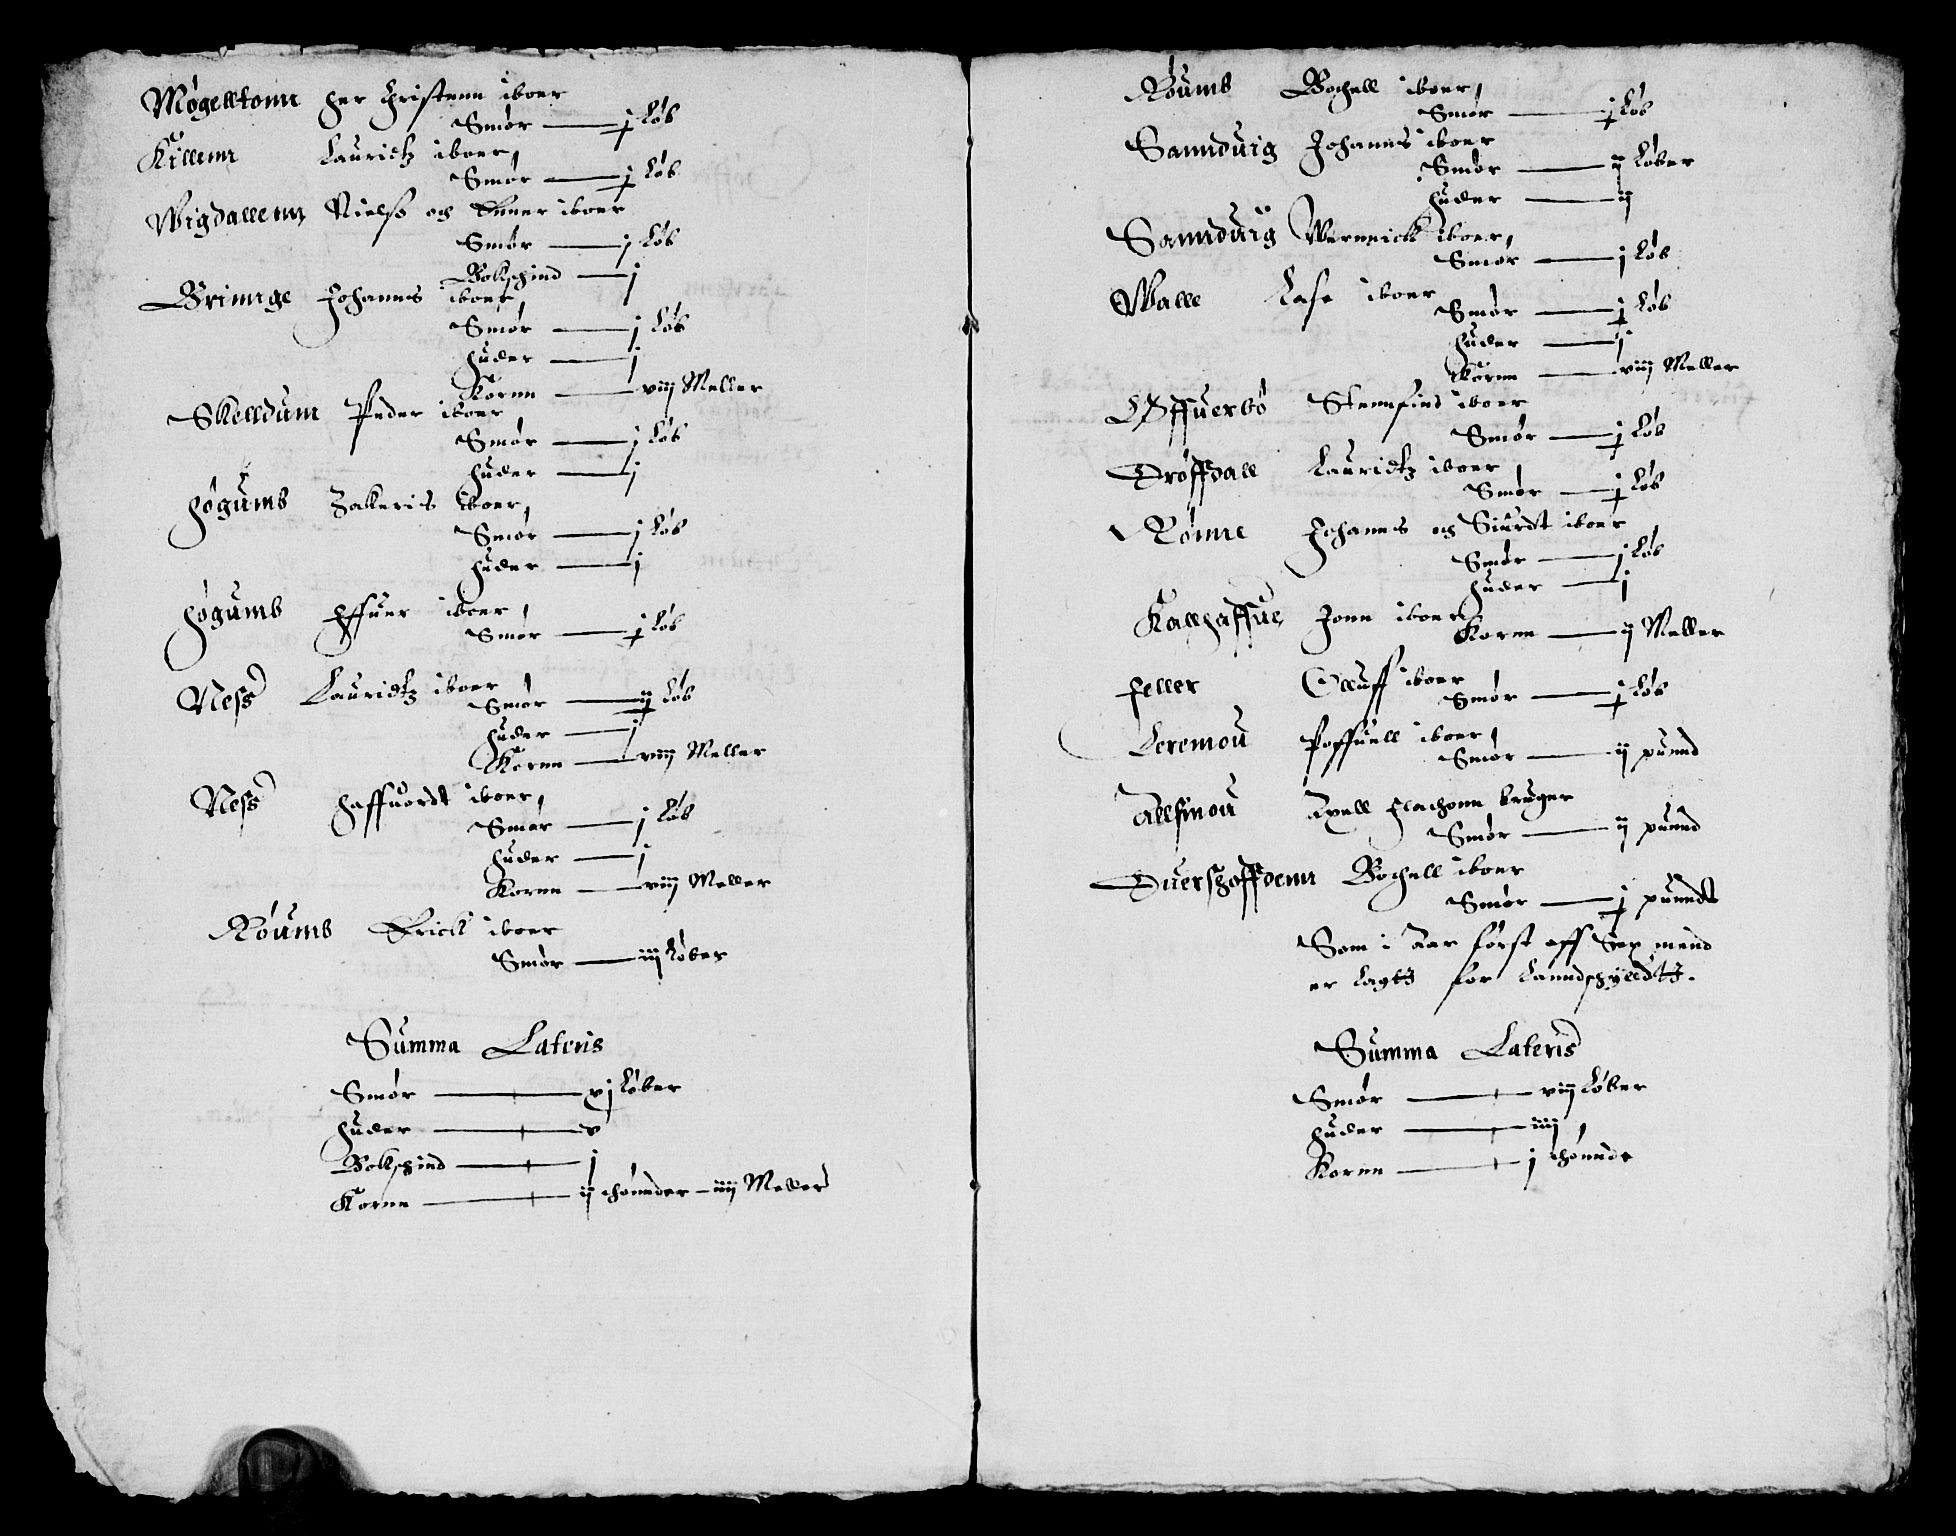 Møgelltonn her Christenn iboer
Smør — j Løb
Killenn Lauridtz iboer,
Smør — j Løb
Wigdallenn Nielss og Enner iboer
Smør — j Løb
Bockschind — j
Brinnge Johannes iboer,
Smør — j Løb
huder — j
Kornn — viiij Meller
Skelldum Peder iboer
Smør — j Løb
huder — j
høgumb Zakeris iboer,
Smør — j Løb
huder — j
høgumb Effuer iboer,
Smør — j Løb
Ness Lauridtz iboer
Smør — ij Løb
huder — j
Kornn — viiij Meller
Ness haffuordt iboer,
Smør — j Løb
huder — j
Kornn — viiij Meller
Røumb Erick iboer
Smør — iij Løber
Summa Lateris
Smør — xj Løber
huder — v
Bockschind — j
Kornn — ij thønnder – iiij Meller
Røumb Bochell iboer,
Smør — j Løb
Sanndvig Johannes iboer
Smør — ij Løber
huder — ij
Sanndvig Wernnick iboer,
Smør — j Løb
Walle Lase iboer
Smør — j Løb
huder — j
Kornn — viiij Meller
Offuerbø Stennfind iboer
Smør — j Løb
Drøffdall Lauridtz iboer,
Smør — j Løb
Rønne Johannes og Siurdt iboer
Smør — j Løb
huder — j
Kallhaffue Jonn iboer
Kornn — ij Meller
feller Olluff iboer
Smør — j Løb
Leremou Poffuell iboer,
Smør — ij punnd
Allsmou Axell flachonn bruger
Smør — ij punnd
Duershoffdenn Bochell iboer
Smør — j punndt
Som i Aar først aff Sex mend
er lagtt for Lanndschylldtt.
Summa Lateris
Smør — viij Løber
huder — iiij,
Kornn — j thønnde